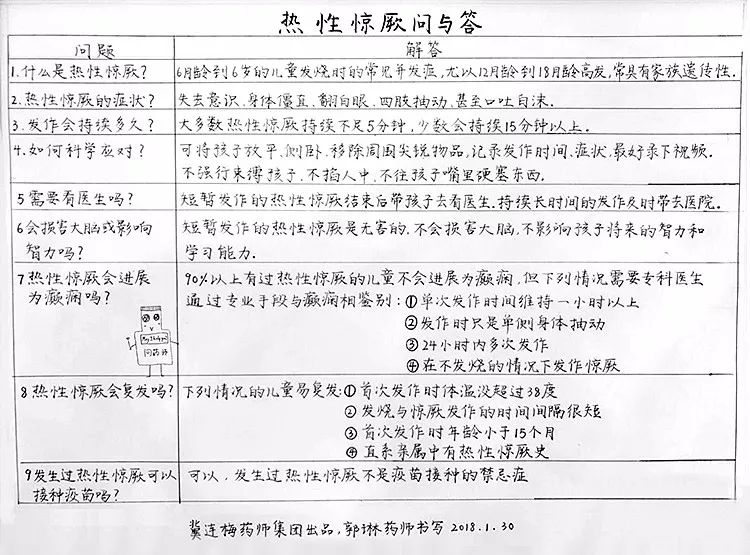 热性惊厥问与答
问题 解答
1.什么是热性惊厥? 6月龄到6岁的儿童发烧时的常见并发症,尤以12月龄到18月龄高发,常具有家族遗传性.
2.热性惊厥的症状? 失去意识、身体僵直、翻白眼、四肢抽动、甚至口吐白沫.
3.发作会持续多久? 大多数热性惊厥持续不足5分钟,少数会持续15分钟以上.
4.如何科学应对? 可将孩子放平、侧卧、移除周围尖锐物品,记录发作时间、症状,最好录下视频.
不强行束缚孩子、不掐人中、不往孩子嘴里硬塞东西.
5需要看医生吗? 短暂发作的热性惊厥结束后带孩子去看医生、持续长时间的发作及时带去医院.
6会损害大脑或影响 短暂发作的热性惊厥是无害的、不会损害大脑,不影响孩子将来的智力和
智力吗? 学习能力.
7热性惊厥会进展 90%以上有过热性惊厥的儿童不会进展为癫痫,但下列情况需要专科医生
为癫痫吗? 通过专业手段与癫痫相鉴别:①单次发作时间维持一小时以上
②发作时只是单侧身体抽动
③24小时内多次发作
问药师
④在不发烧的情况下发作惊厥
8热性惊厥会复发吗? 下列情况的儿童易复发:①首次发作时体温没超过38度
②发烧与惊厥发作的时间间隔很短
③首次发作时年龄小于15个月
④直系亲属中有热性惊厥史
9发生过热性惊厥可以 可以,发生过热性惊厥不是疫苗接种的禁忌症
接种疫苗吗?
冀连梅药师集团出品,郭琳药师书写2018.1.30